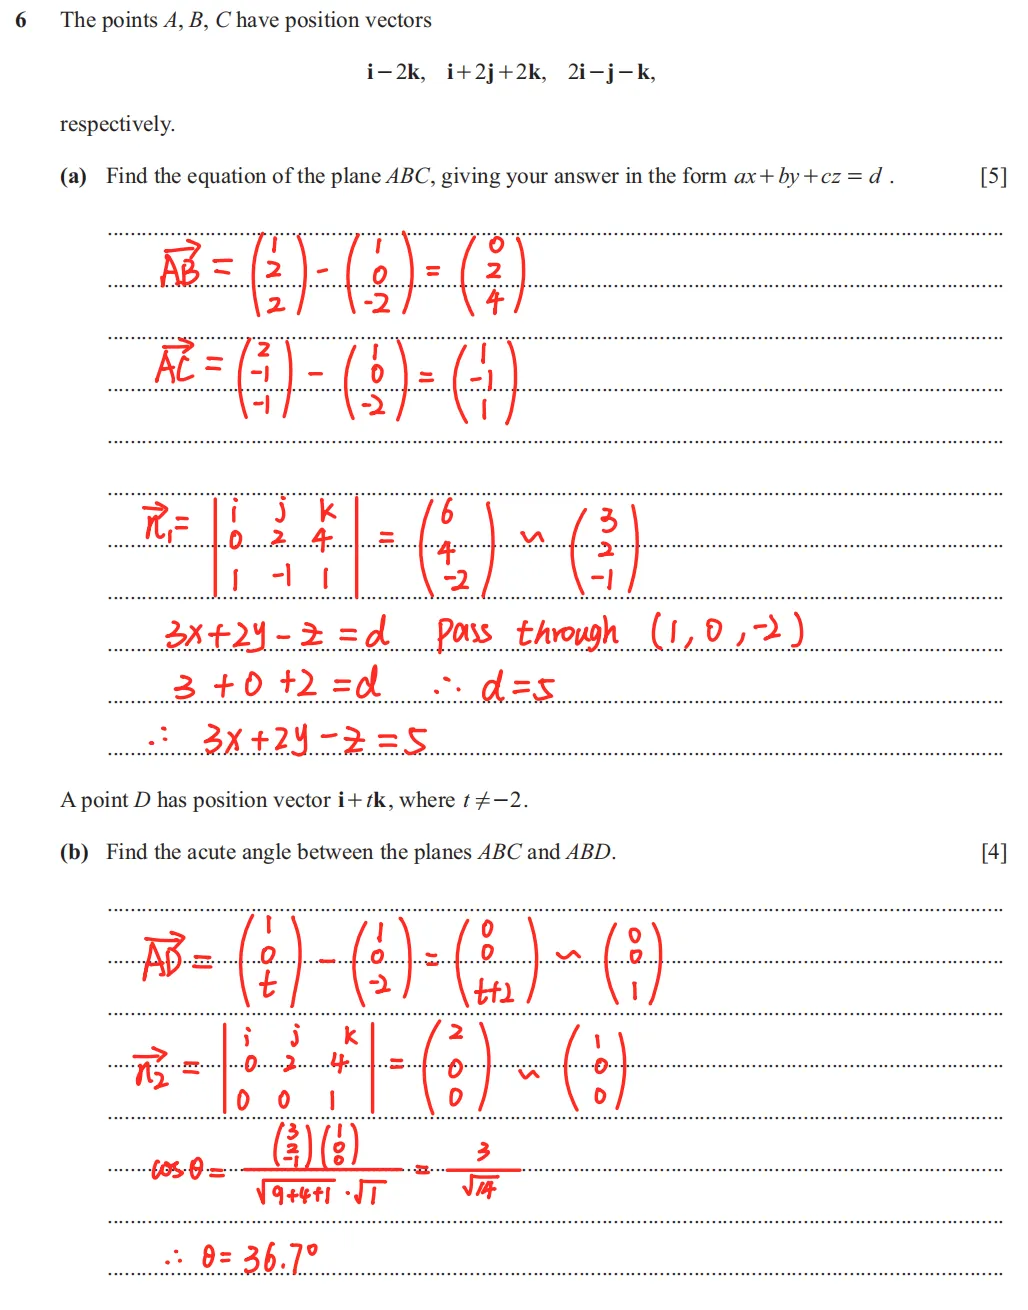 6 The points A, B, C have position vectors
i−2k, i+2j+2k, 2i−j−k,
respectively.
(a) Find the equation of the plane ABC, giving your answer in the form ax+by+cz = d . [5]
$\overrightarrow{AB} = \begin{pmatrix} 1 \\ 2 \\ 2 \end{pmatrix} - \begin{pmatrix} 1 \\ 0 \\ -2 \end{pmatrix} = \begin{pmatrix} 0 \\ 2 \\ 4 \end{pmatrix}$
$\overrightarrow{AC} = \begin{pmatrix} 2 \\ -1 \\ -1 \end{pmatrix} - \begin{pmatrix} 1 \\ 0 \\ -2 \end{pmatrix} = \begin{pmatrix} 1 \\ -1 \\ 1 \end{pmatrix}$
$\overrightarrow{n_1} = \begin{vmatrix} i & j & k \\ 0 & 2 & 4 \\ 1 & -1 & 1 \end{vmatrix} = \begin{pmatrix} 6 \\ 4 \\ -2 \end{pmatrix} \sim \begin{pmatrix} 3 \\ 2 \\ -1 \end{pmatrix}$
3x+2y−z=d pass through (1, 0, -2)
3+0+2=d ∴ d=5
∴ 3x+2y−z=5
A point D has position vector i+tk, where t ≠ −2.
(b) Find the acute angle between the planes ABC and ABD. [4]
$\overrightarrow{AD} = \begin{pmatrix} 1 \\ 0 \\ t \end{pmatrix} - \begin{pmatrix} 1 \\ 0 \\ -2 \end{pmatrix} = \begin{pmatrix} 0 \\ 0 \\ t+2 \end{pmatrix} \sim \begin{pmatrix} 0 \\ 0 \\ 1 \end{pmatrix}$
$\overrightarrow{n_2} = \begin{vmatrix} i & j & k \\ 0 & 2 & 4 \\ 0 & 0 & 1 \end{vmatrix} = \begin{pmatrix} 2 \\ 0 \\ 0 \end{pmatrix} \sim \begin{pmatrix} 1 \\ 0 \\ 0 \end{pmatrix}$
$\cos\theta = \frac{\begin{pmatrix} 3 \\ 2 \\ -1 \end{pmatrix}\begin{pmatrix} 1 \\ 0 \\ 0 \end{pmatrix}}{\sqrt{9+4+1} \cdot \sqrt{1}} = \frac{3}{\sqrt{14}}$
∴ θ= 36.7°